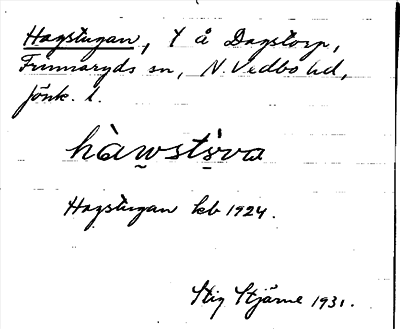 Hagstugan, T å Dagstorp,
Frinnaryds sn, N. Vedbo hd,
Jönk. l.
hàwstòva
Hagstugan kb 1924.
Stig Stjärne 1931.